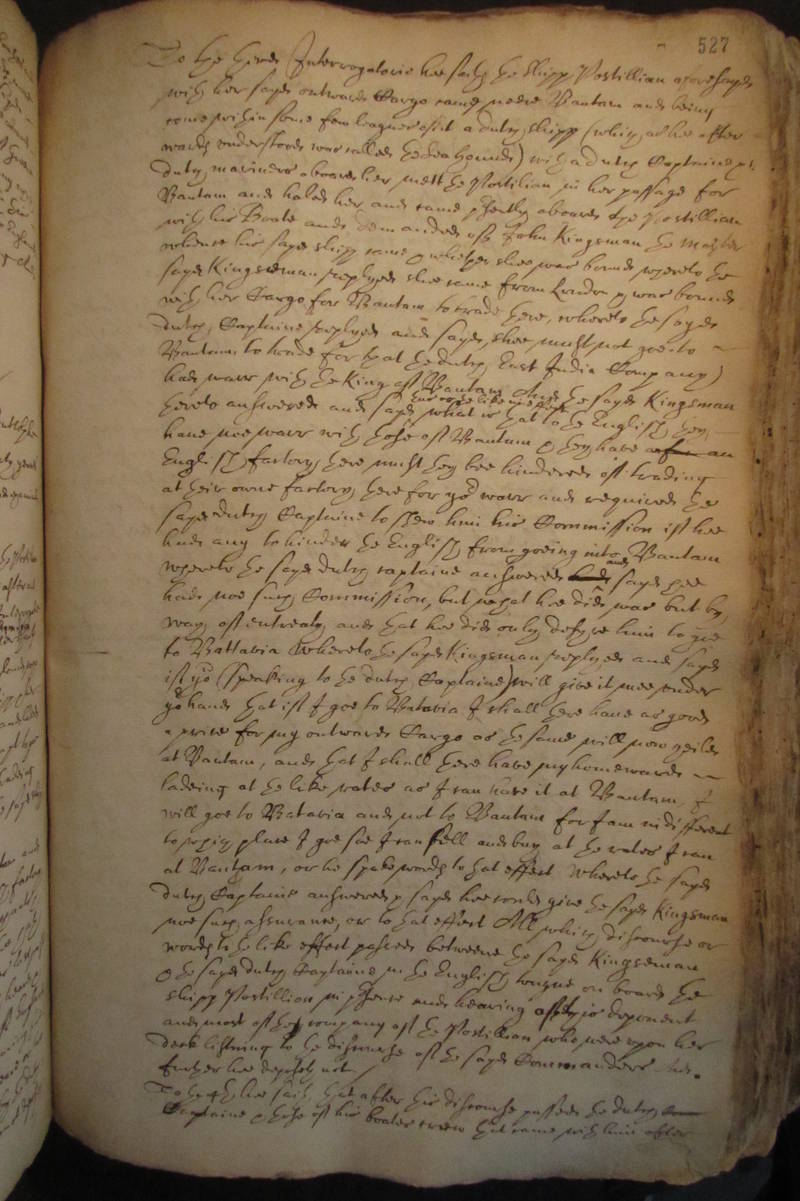 527
To the third Interrogatorie hee saith the shipp Postillian aforesayd
with her sayd outwards Cargo came neere Bantam and being
come within some few leagues of it a dutch shipp (which as hee after
wards understood was called the hounds) with a dutch Captaine &
dutch mariners aboard her mett the Postilian in her passage for
Bantam and haled her and came presently aboard the Postillian
with his Boate and demanded of John Kingsman the Master
whence his sayd shipp came & whether shee was bound whereto the
sayd Kingsman replyed shee came from London & was bound
with her Cargo for Bantam to trade there, whereto the sayd
dutch Captaine replyed and sayd, shee must not goe to
Bantam to trade for that the dutch East India Company)
had warr with the King of Bantam And the sayd Kingsman
thereto answered and sayd what is that to the English they
have noe warr with those of Bantam & they have an
English factory there must they bee hindered of trading
at their owne factory there for yor warr and required the
sayd dutch Captaine to shew him his Commission if hee
had any to hinder the English from goeing into Bantam
whereto the sayd dutch captaine answered and sayd hee
had noe such Commission, but what hee did was but by
way of entreaty and that hee did only desyre him to goe
to Battavia whereto the sayd Kingsman replyed and sayd
if yo (speaking to the dutch Captaine) will give it mee under
yor hand that if I goe to Batavia I shall there have as good
a price for my outwards Cargo as the same will now yeild
at Bantam, and that I shall there have my homewards
ladeing at the like rates as I can have it at Bantam, I
will goe to Batavia and not to Bantam for I am indifferent
to which place I goe soe I can sell and buy at the rates I can
at Bantam, or he spake words to that effect Whereto the sayd
dutch Captaine answered & sayd hee could give the sayd Kingsman
noe such assurance, or to that effect All which discourse or
words to the like effect passed betweene the sayd Kingseman
& the sayd dutch Captaine in the English tongue on board the
shipp Postillion in presence and hearing of this deponent
and most of the company of the Postillian who were upon her
deck listning to the discourse of the sayd Commanders And
further hee deposeth not.
To the 4th hee saith that after this discourse passed the dutch
Captaine & those of his boates crew that came with him after